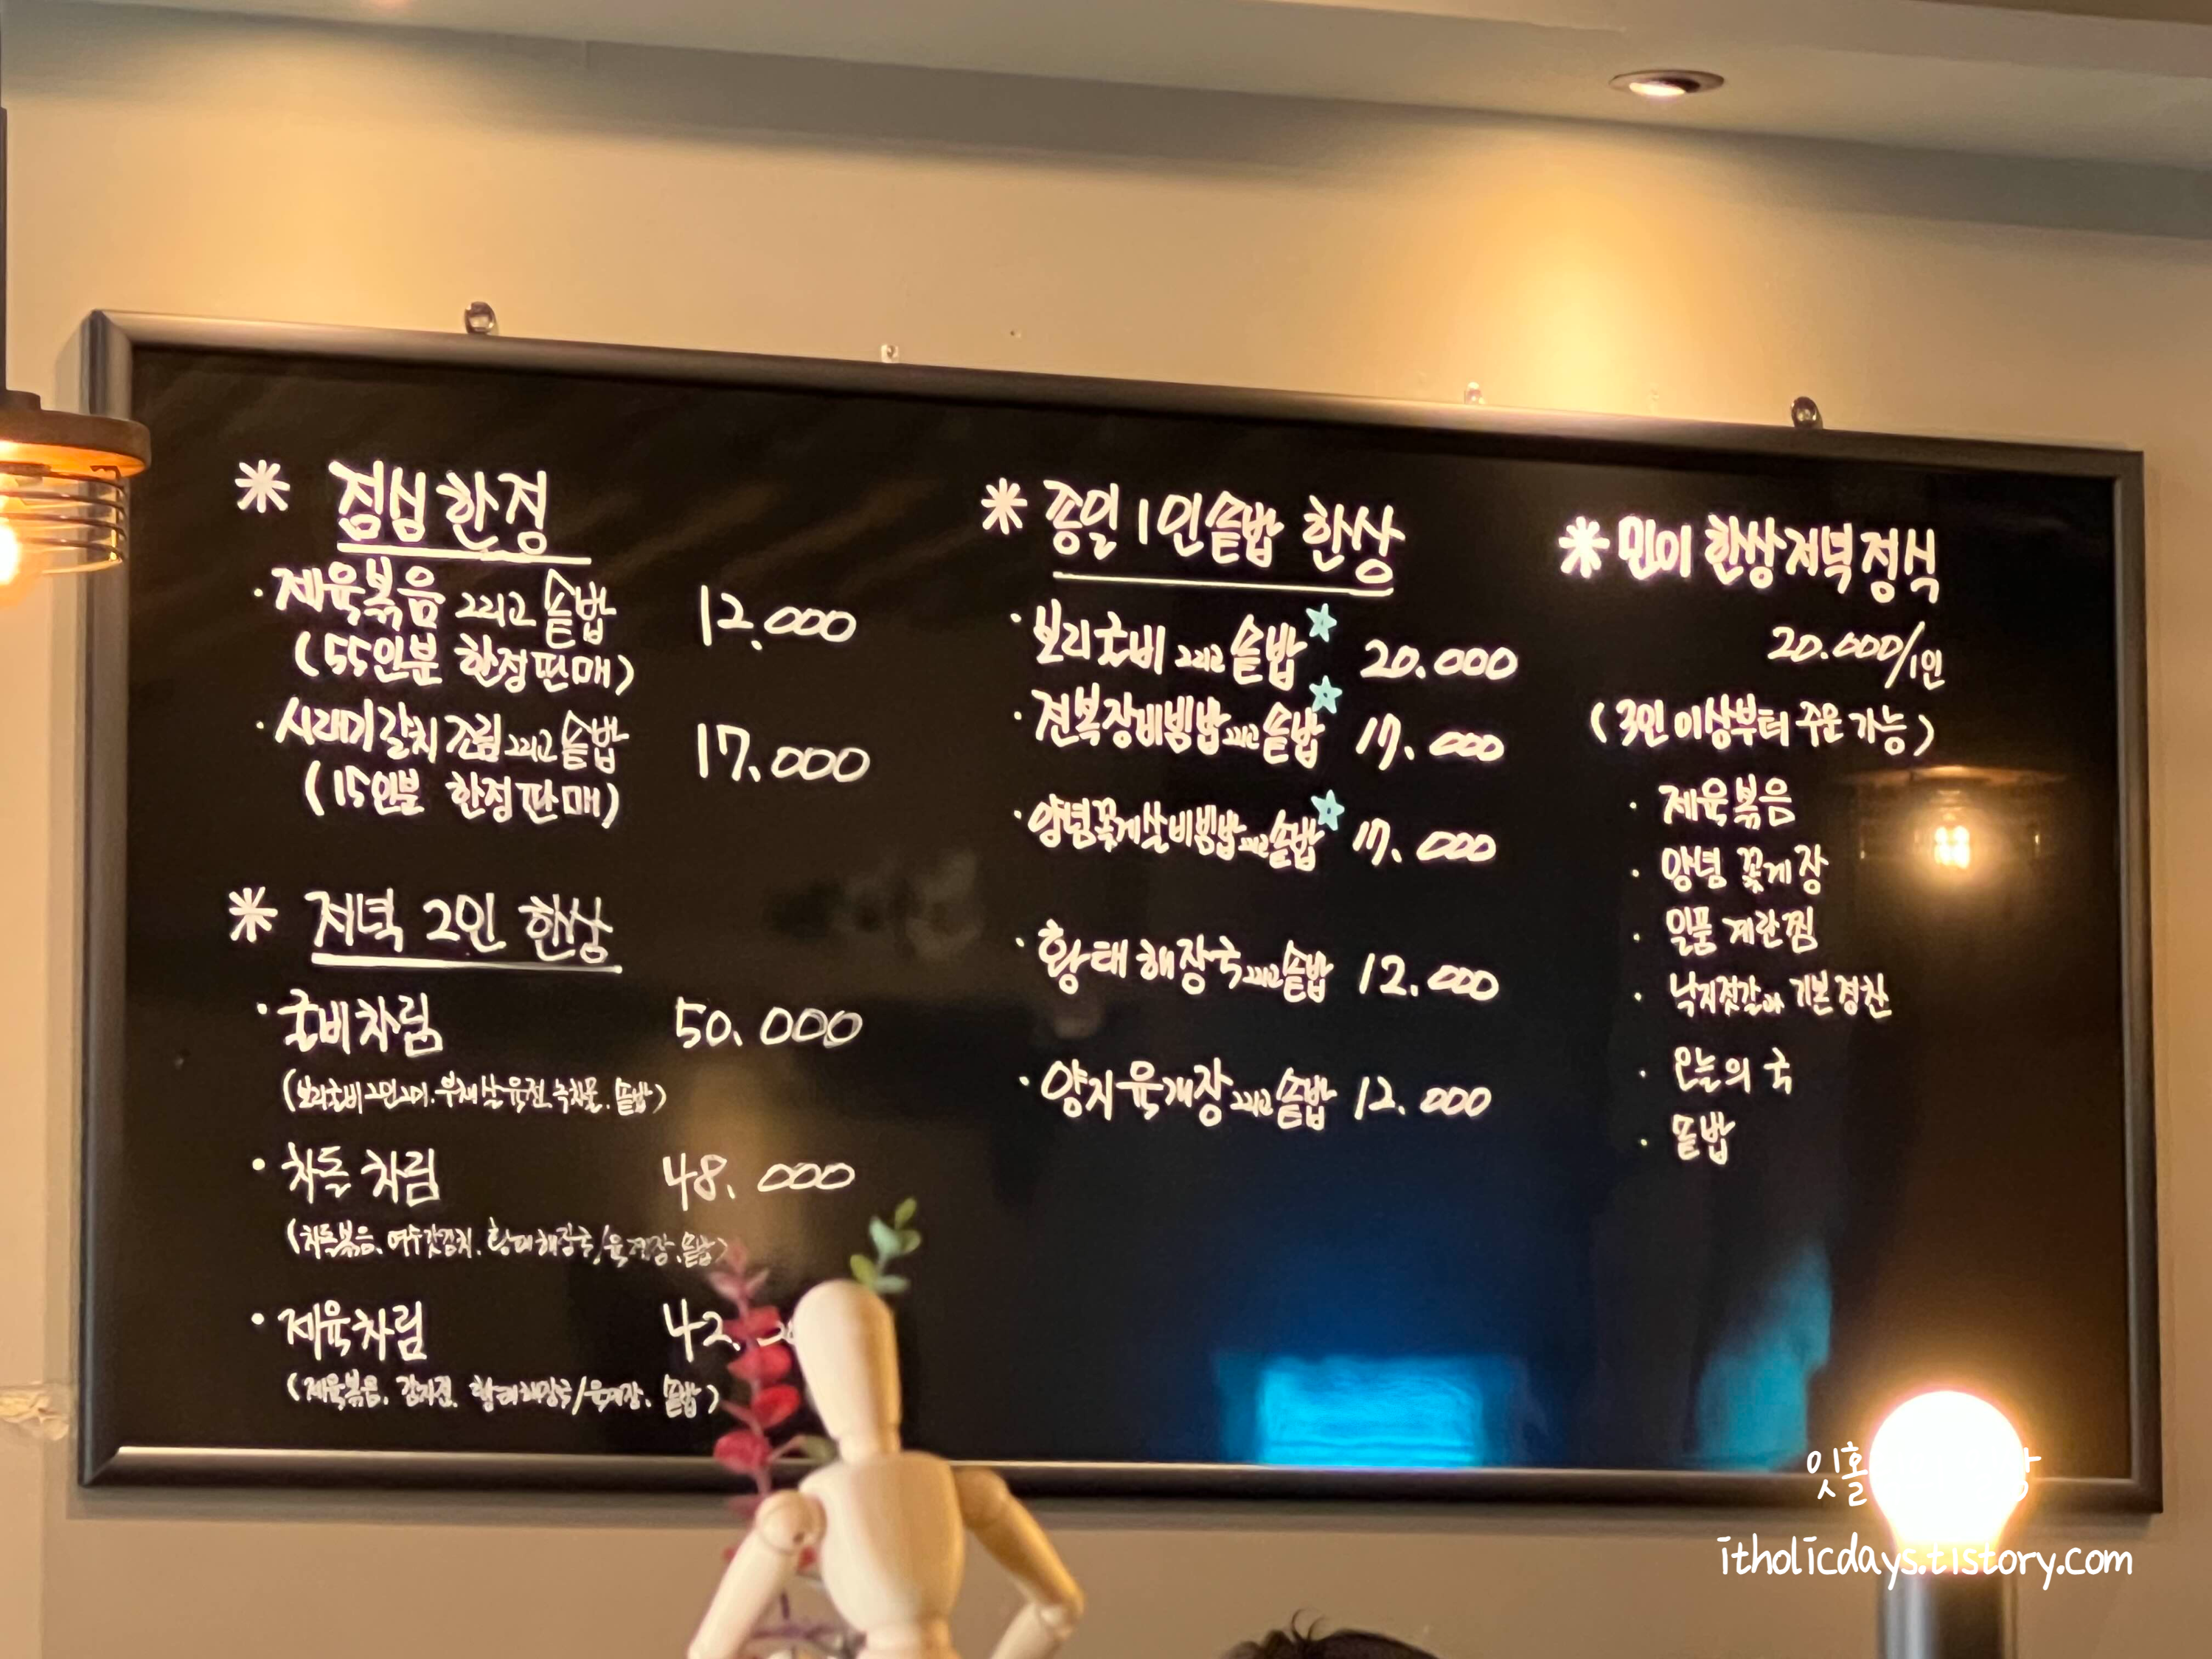 * 점심 한정
· 제육볶음 그리고 솥밥 12.000
(55인분 한정판매)
· 시래기 갈치 조림 그리고 솥밥 17.000
(15인분 한정판매)
* 저녁 2인 한상
· 굴비차림 50.000
(보리굴비 2인 부채살육전. 녹차물. 솥밥)
· 차돌 차림 48.000
(차돌볶음. 여수갓김치. 황태해장국/육개장. 솥밥)
· 제육차림 42.
(제육볶음. 감자전. 황태해장국/육개장. 솥밥)
* 종일 1인솥밥 한상
· 보리굴비 그리고 솥밥 20.000
· 전복장비빔밥 그리고 솥밥 17.000
· 양념꽃게살비빔밥 그리고 솥밥 17.000
· 황태해장국 그리고 솥밥 12.000
· 양지육개장 그리고 솥밥 12.000
* 민이 한상 저녁 정식
20.000/1인
(3인 이상부터 주문 가능)
· 제육볶음
· 양념 꽃게장
· 일품 계란찜
· 낙지젓갈과 기본 경찬
· 오늘의 국
· 솥밥
잇홀
itholicdays.tistory.com